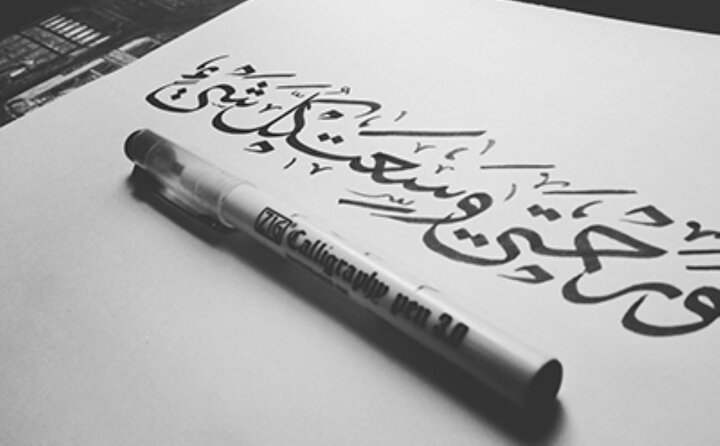 ورحمتي وسعت كل شيء
ZIG Calligraphy pen 3.0